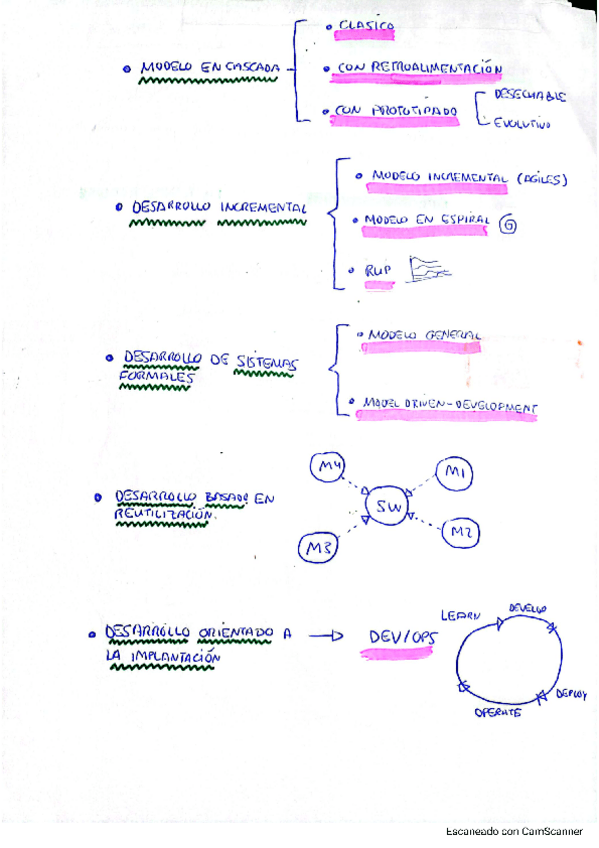 • CLÁSICO
• MODELO EN CASCADA
• CON RETROALIMENTACIÓN
• CON PROTOTIPADO
DESECHABLE
EVOLUTIVO
• DESARROLLO INCREMENTAL
• MODELO INCREMENTAL (AGILES)
• MODELO EN ESPIRAL
• RUP
• DESARROLLO DE SISTEMAS
FORMALES
• MODELO GENERAL
• MODEL DRIVEN-DEVELOPMENT
• DESARROLLO BASADO EN
REUTILIZACIÓN.
M4
M1
SW
M3
M2
• DESARROLLO ORIENTADO A
LA IMPLANTACIÓN
→ DEV/OPS
LEARN
DEVELOP
DEPLOY
OPERATE
Escaneado con CamScanner